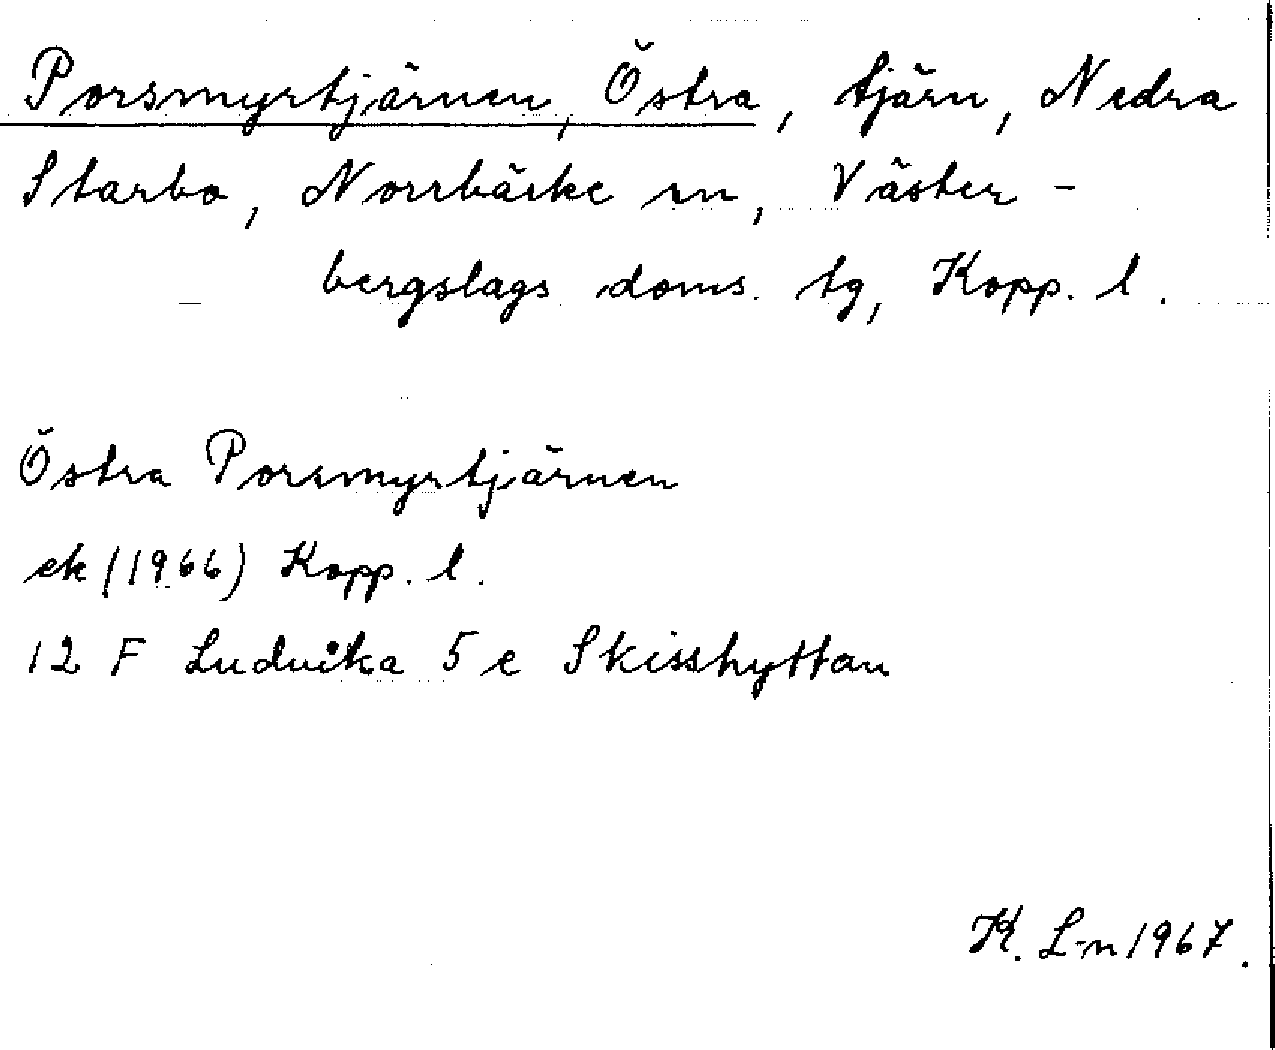 Porsmyrtjärnen, Östra, tjärn, Nedra
Starbo, Norrbärke sn, Väster-
bergslags doms. tg, Kopp. l.
Östra Porsmyrtjärnen
ek (1966) Kopp. l.
12 F Ludvika 5 e Skisshyttan
K. L-n 1967.